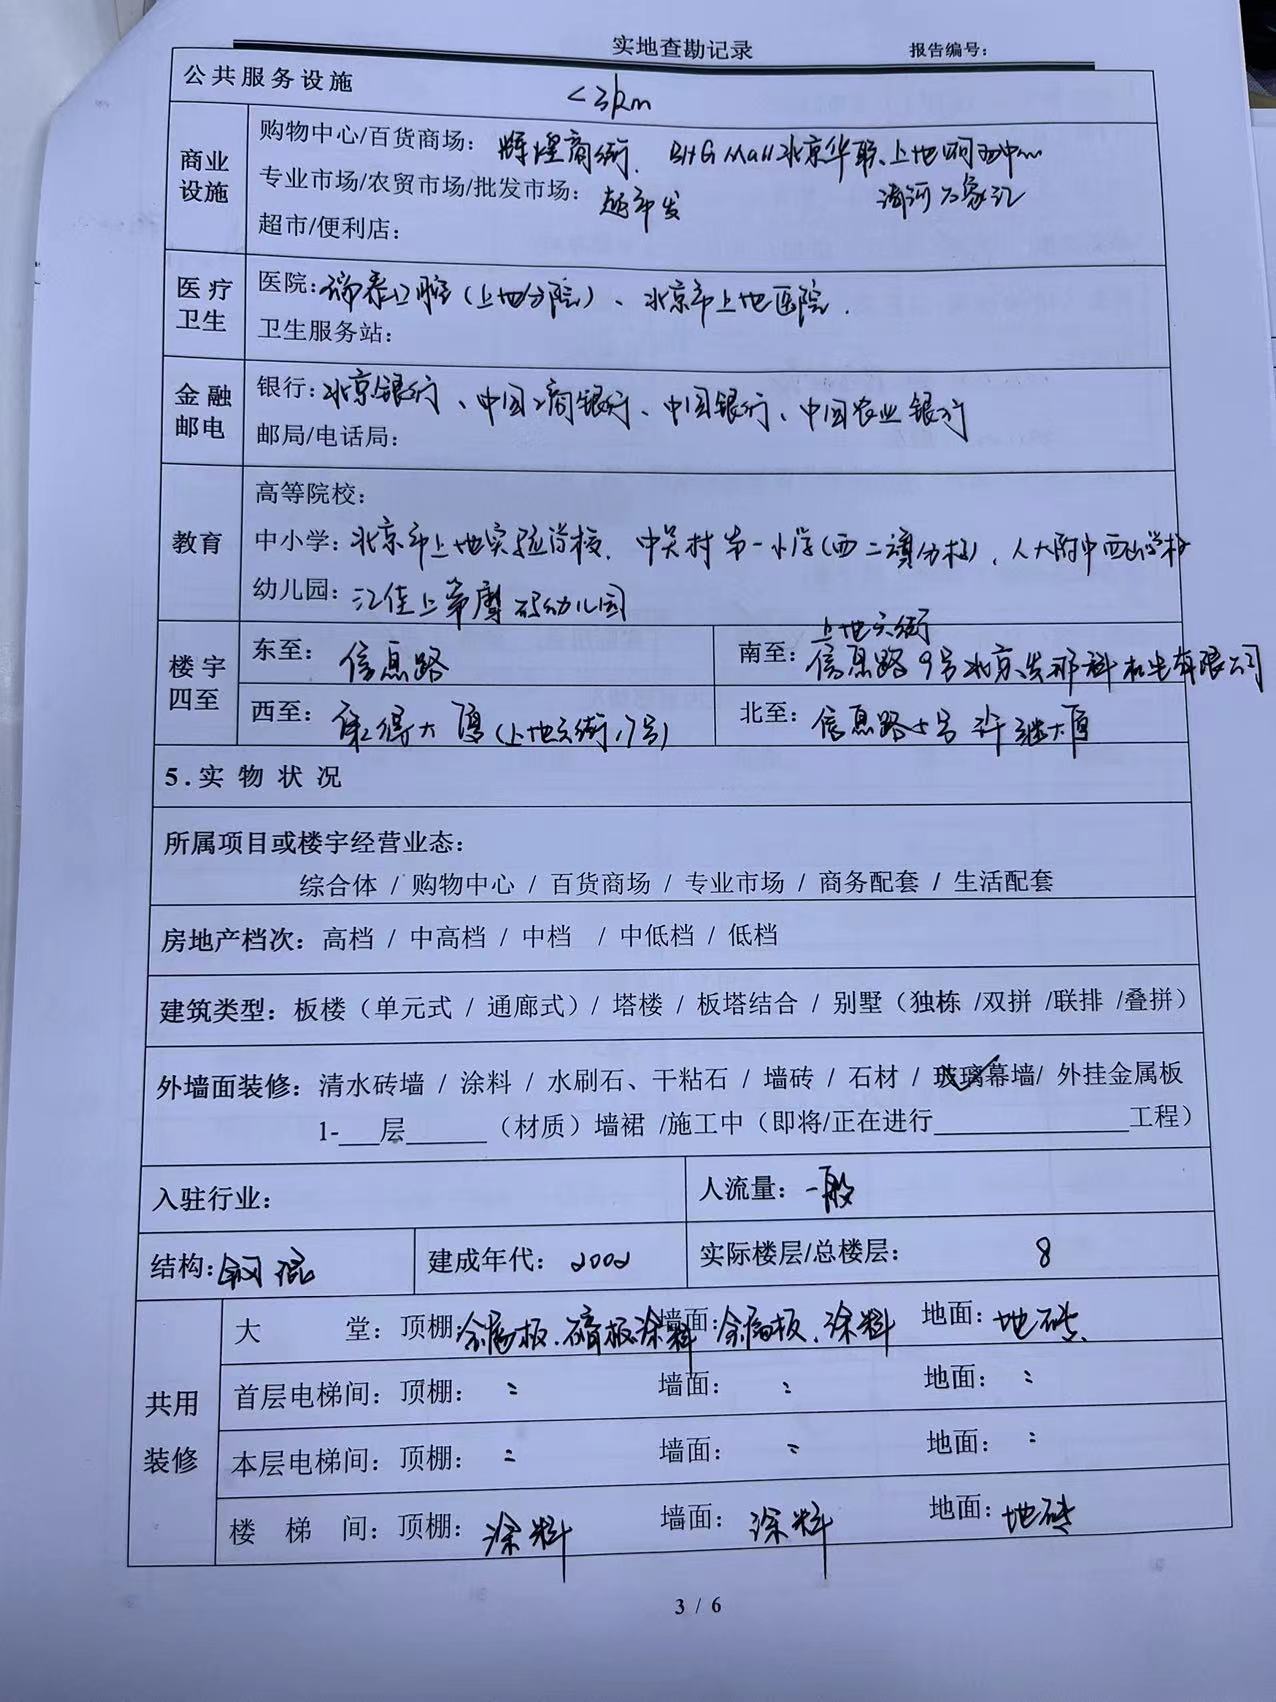 实地查勘记录 报告编号：
公共服务设施 <3km
商业设施
购物中心/百货商场： 辉煌商街、BHG Mall北京华联、上地
专业市场/农贸市场/批发市场： 超市发 清河万象汇
超市/便利店：
医疗卫生
医院：瑞泰口腔（上地分院）、北京市上地医院.
卫生服务站：
金融邮电
银行：北京银行、中国工商银行、中国银行、中国农业银行
邮局/电话局：
教育
高等院校：
中小学：北京市上地实验学校、中关村第一小学（西二旗分校）、人大附中西山学校
幼儿园：汇佳上第摩码幼儿园
楼宇四至
上地六街
东至：信息路 南至：信息路9号北京发那科机电有限公司
西至：大厦（上地六街17号） 北至：信息路七号 许继大厦
5.实物状况
所属项目或楼宇经营业态：
综合体 / 购物中心 / 百货商场 / 专业市场 / 商务配套 / 生活配套
房地产档次：高档 / 中高档 / 中档 / 中低档 / 低档
建筑类型：板楼（单元式 / 通廊式）/ 塔楼 / 板塔结合 / 别墅（独栋 /双拼 /联排 /叠拼）
外墙面装修：清水砖墙 / 涂料 / 水刷石、干粘石 / 墙砖 / 石材 / 玻璃幕墙/ 外挂金属板
1-___层______（材质）墙裙 /施工中（即将/正在进行______________工程）
入驻行业： 人流量：一般
结构：钢混 建成年代：2002 实际楼层/总楼层： 8
共用装修
大 堂：顶棚：金属板、石膏板、涂料 墙面：金属板、涂料 地面：地砖
首层电梯间：顶棚：〃 墙面：〃 地面：〃
本层电梯间：顶棚：〃 墙面：〃 地面：〃
楼 梯 间：顶棚：涂料 墙面：涂料 地面：地砖
3 / 6